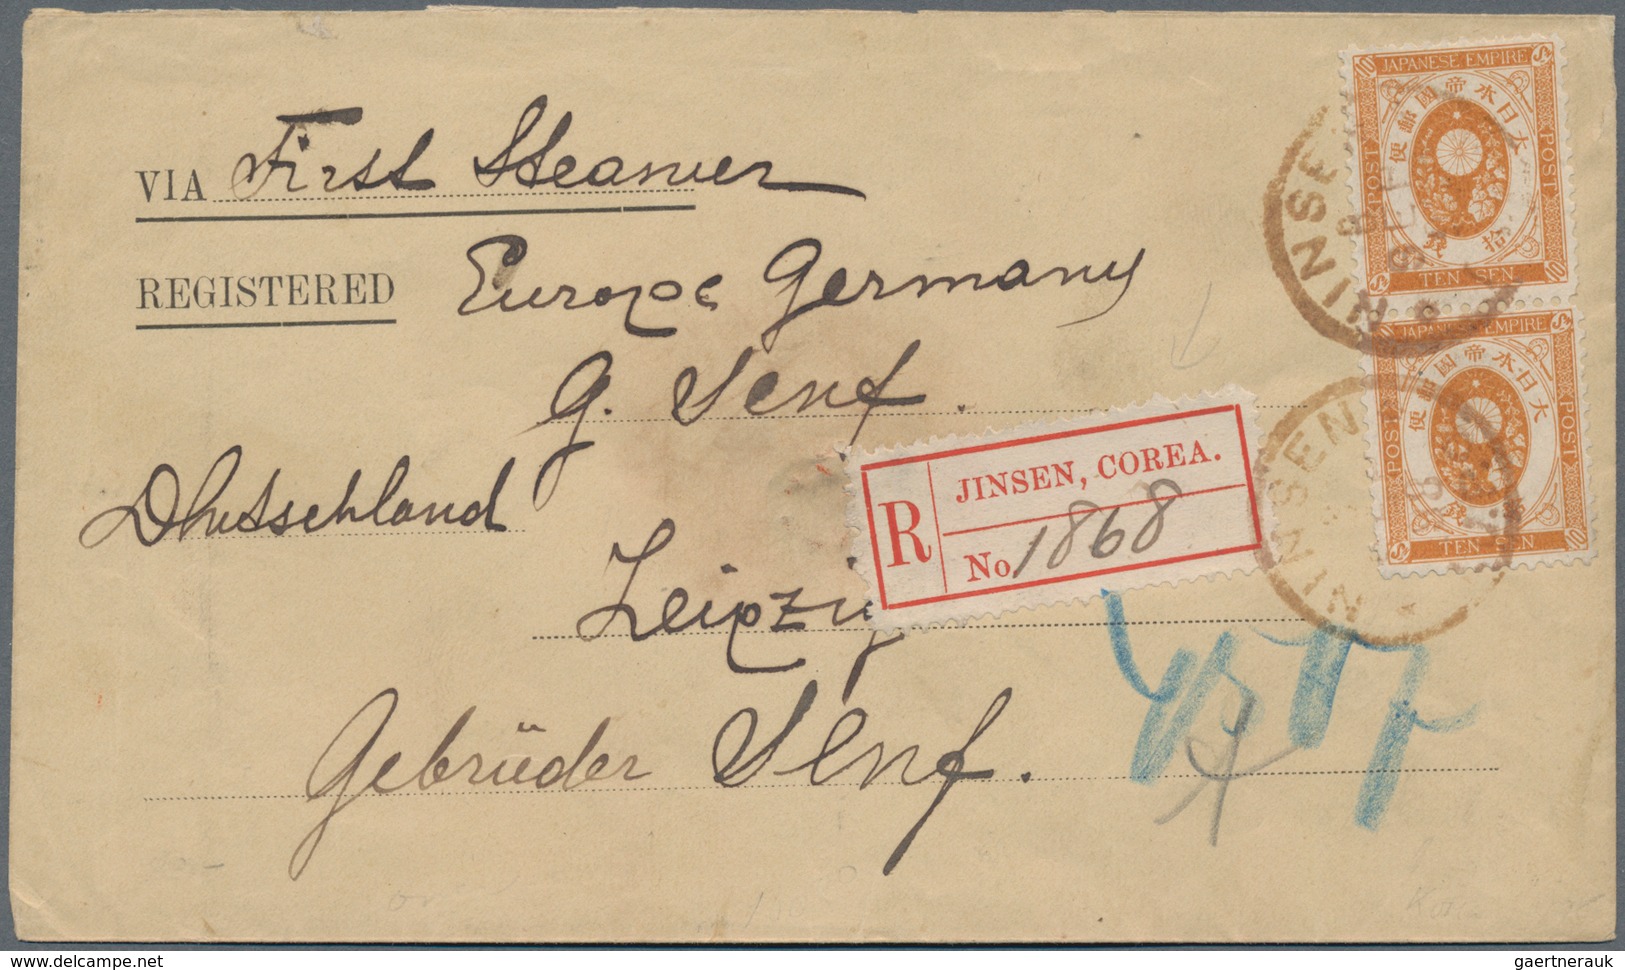 VIA First Steamer
REGISTERED Europe Germany
G. Senf.
Dhutsschland
Leipzig
Gebrüder Senf.
R
JINSEN, COREA.
No 1868
10 JAPANESE EMPIRE Sn
大日本帝國郵便
POST POST
拾錢
Sn TEN SEN 10
JINSEN
10 JAPANESE EMPIRE Sn
大日本帝國郵便
POST POST
拾錢
Sn TEN SEN 10
JINSEN
www.delcampe.net
gaertnerauk